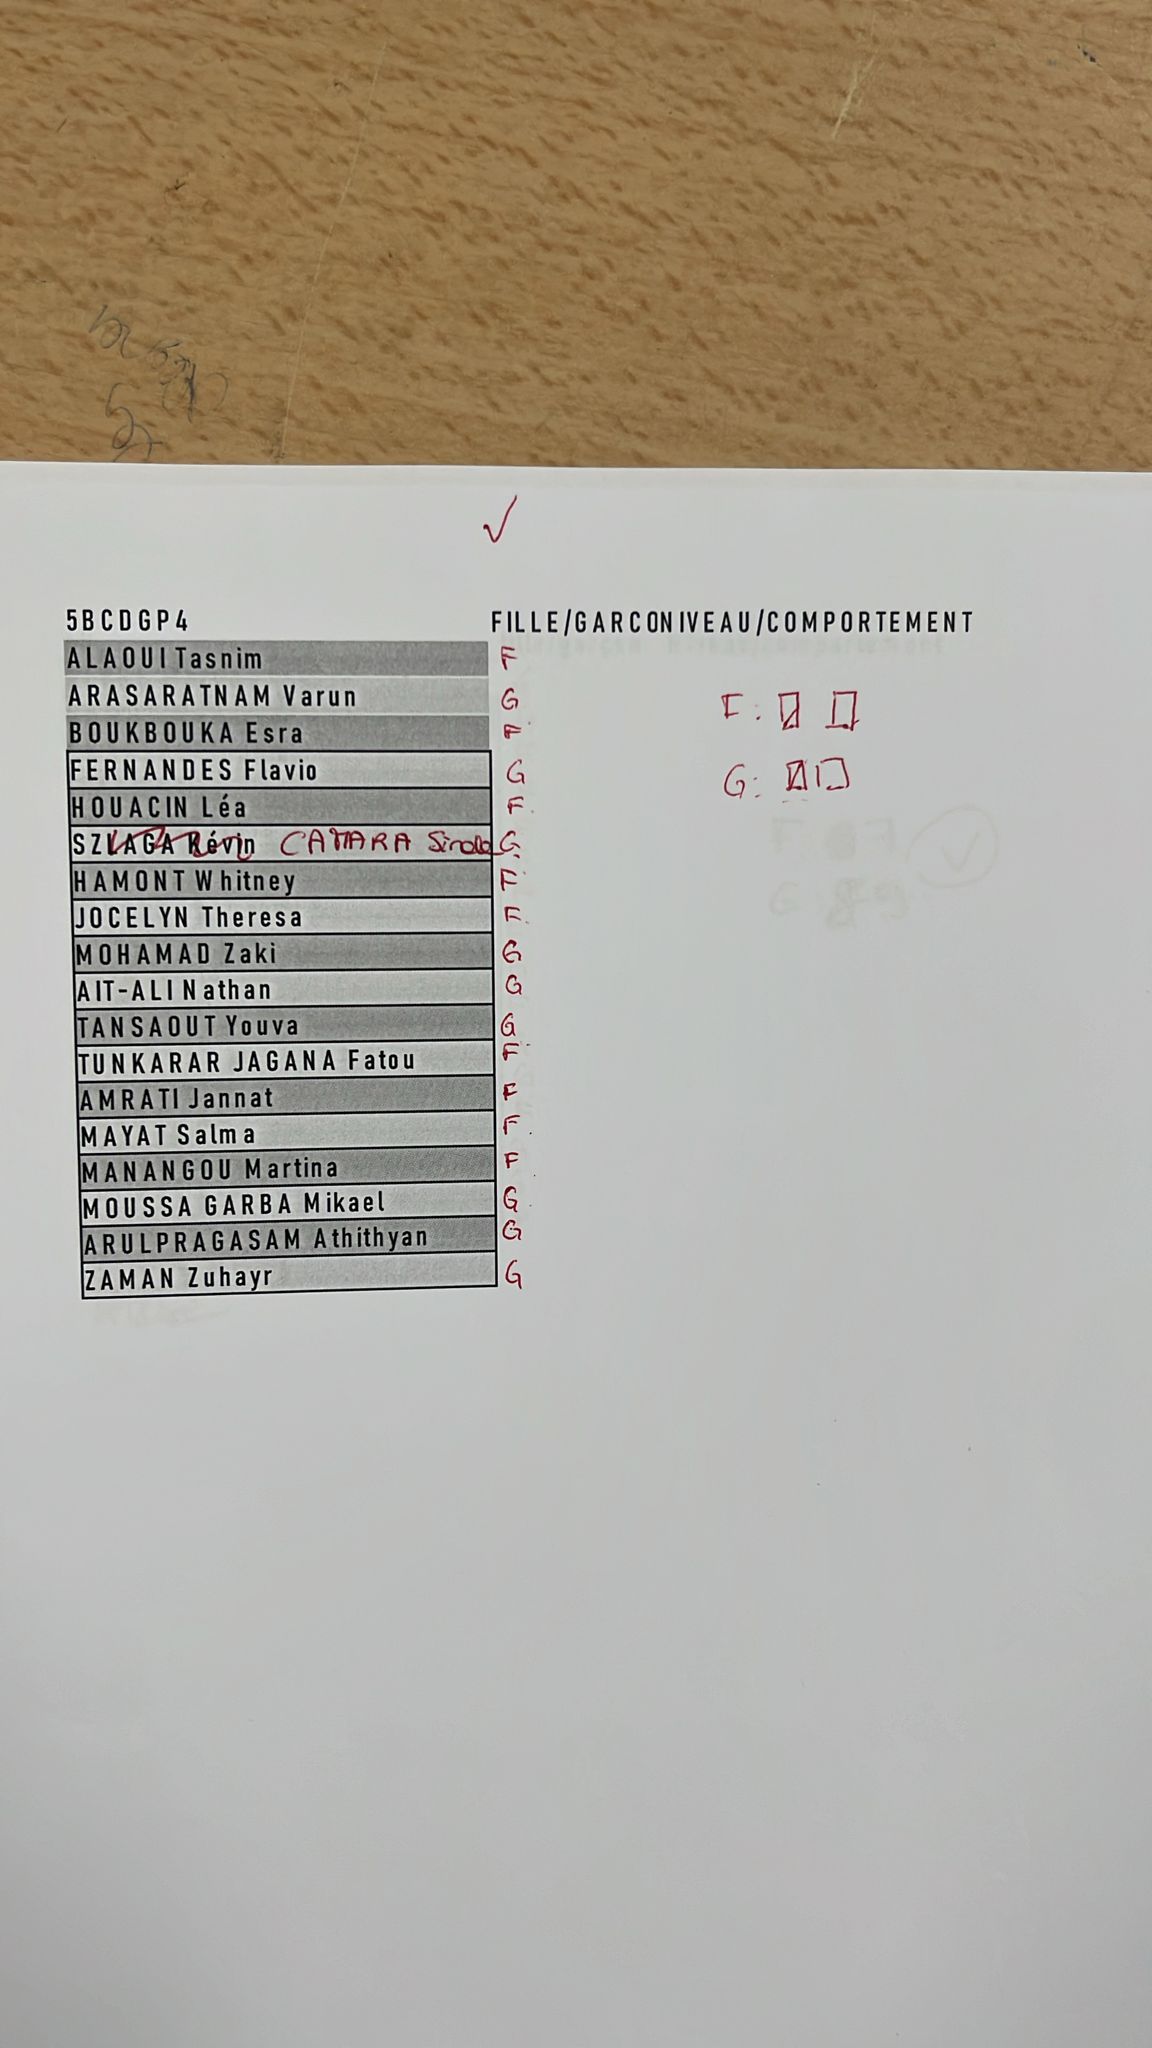 5BCDGP4 FILLE/GARCONIVEAU/COMPORTEMENT
ALAOUI Tasnim F
ARASARATNAM Varun G
BOUKBOUKA Esra F
FERNANDES Flavio G
HOUACIN Léa F
SZLAGA Kévin CAMARA G
HAMONT Whitney F
JOCELYN Theresa F
MOHAMAD Zaki G
AIT-ALI Nathan G
TANSAOUT Youva G
TUNKARAR JAGANA Fatou F
AMRATI Jannat F
MAYAT Salma F
MANANGOU Martina F
MOUSSA GARBA Mikael G
ARULPRAGASAM Athithyan G
ZAMAN Zuhayr G
F:
G: